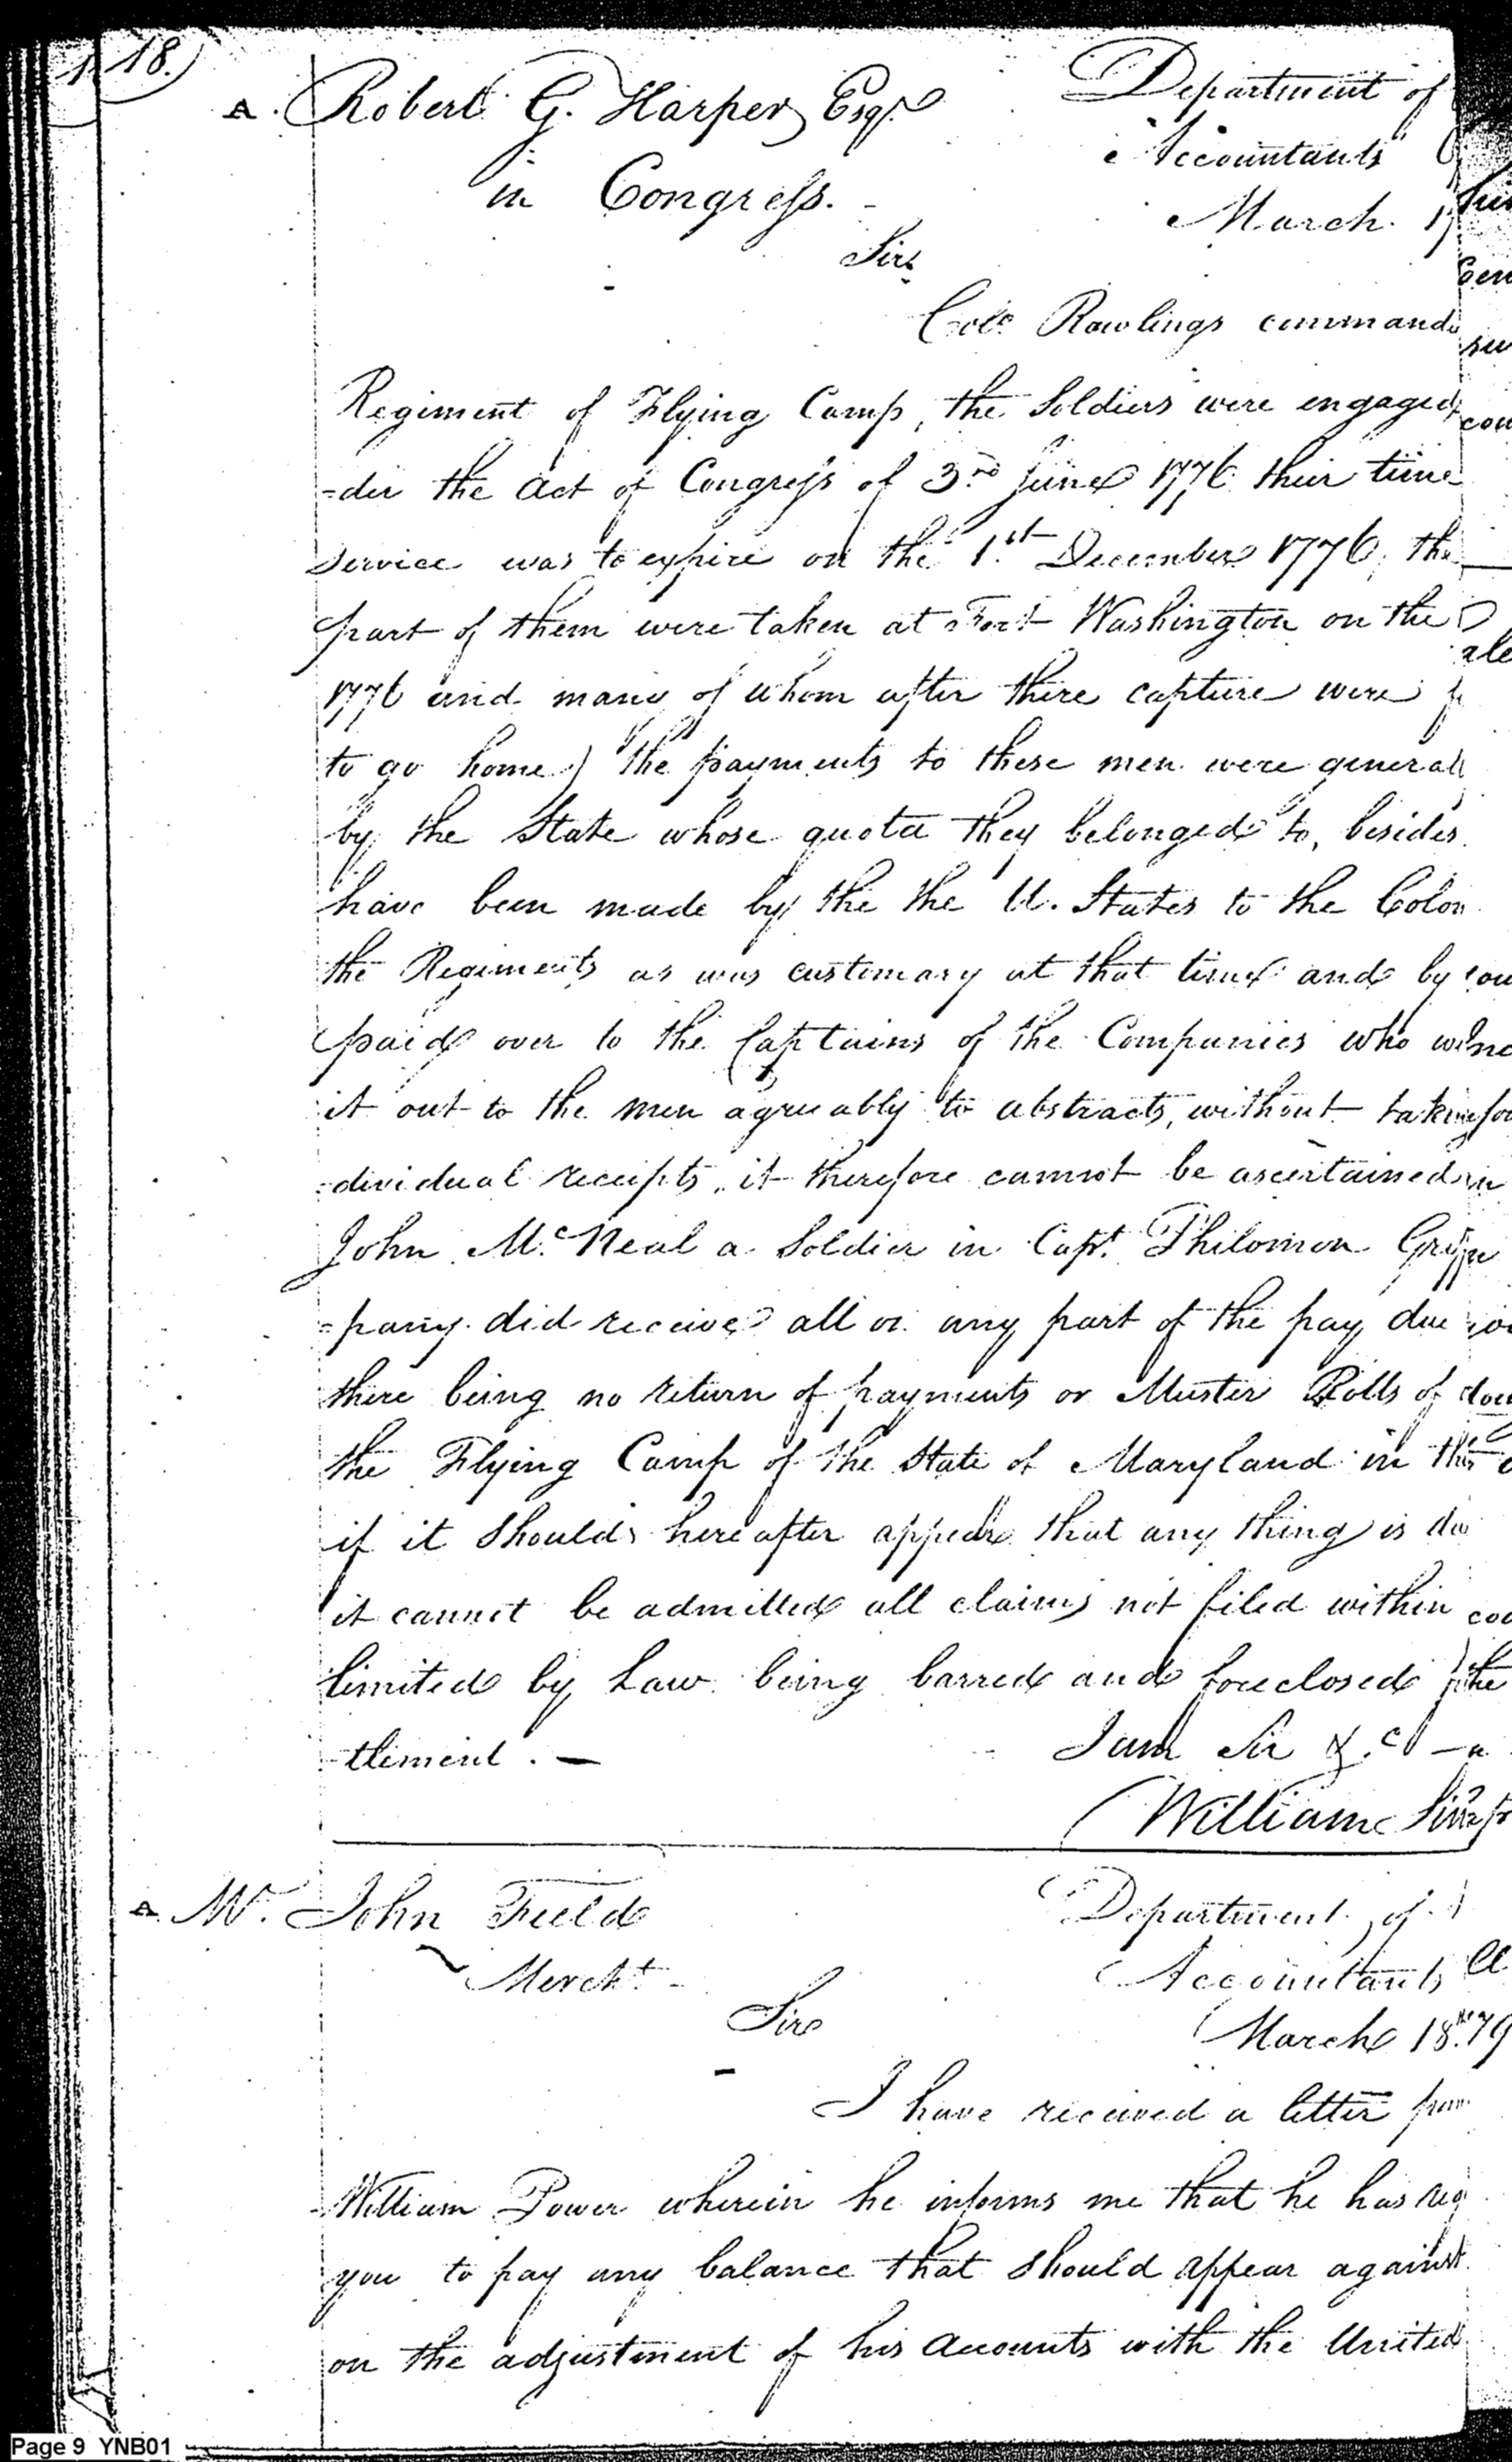 18.
A. Robert G. Harper Esqr.
Department of
in Congress.
Accountants
March
Sir
Colo. Rawlings command
Regiment of Flying Camp, the Soldiers were engaged
-der the Act of Congress of 3rd June 1776 their time
service was to expire on the 1st December 1776, the
part of them were taken at Fort Washington on the
1776 and many of whom after there capture were
to go home) the payments to these men were general
by the State whose quota they belonged to, besides
have been made by the the U. States to the Colon
the Regiments as was customary at that time and by
paid over to the Captains of the Companies who
it out to the men agreeably to abstracts, without taking
-dividual receipts, it therefore cannot be ascertained
John McNeal a Soldier in Capt. Philomon
-pany did receive all or any part of the pay due
there being no return of payments or Muster Rolls of
the Flying Camp of the State of Maryland in this
if it should hereafter appear that any thing is du
it cannot be admitted all claims not filed within
limited by Law being barred and foreclosed
-tlement. —
I am Sir &c —
William
A. Mr. John Field
Department of
Mercht.
Accountants
Sir
March 18th 179
I have received a letter from
William Power wherein he informs me that he has req
you to pay any balance that should appear against
on the adjustment of his Accounts with the United
Page 9 YNB01